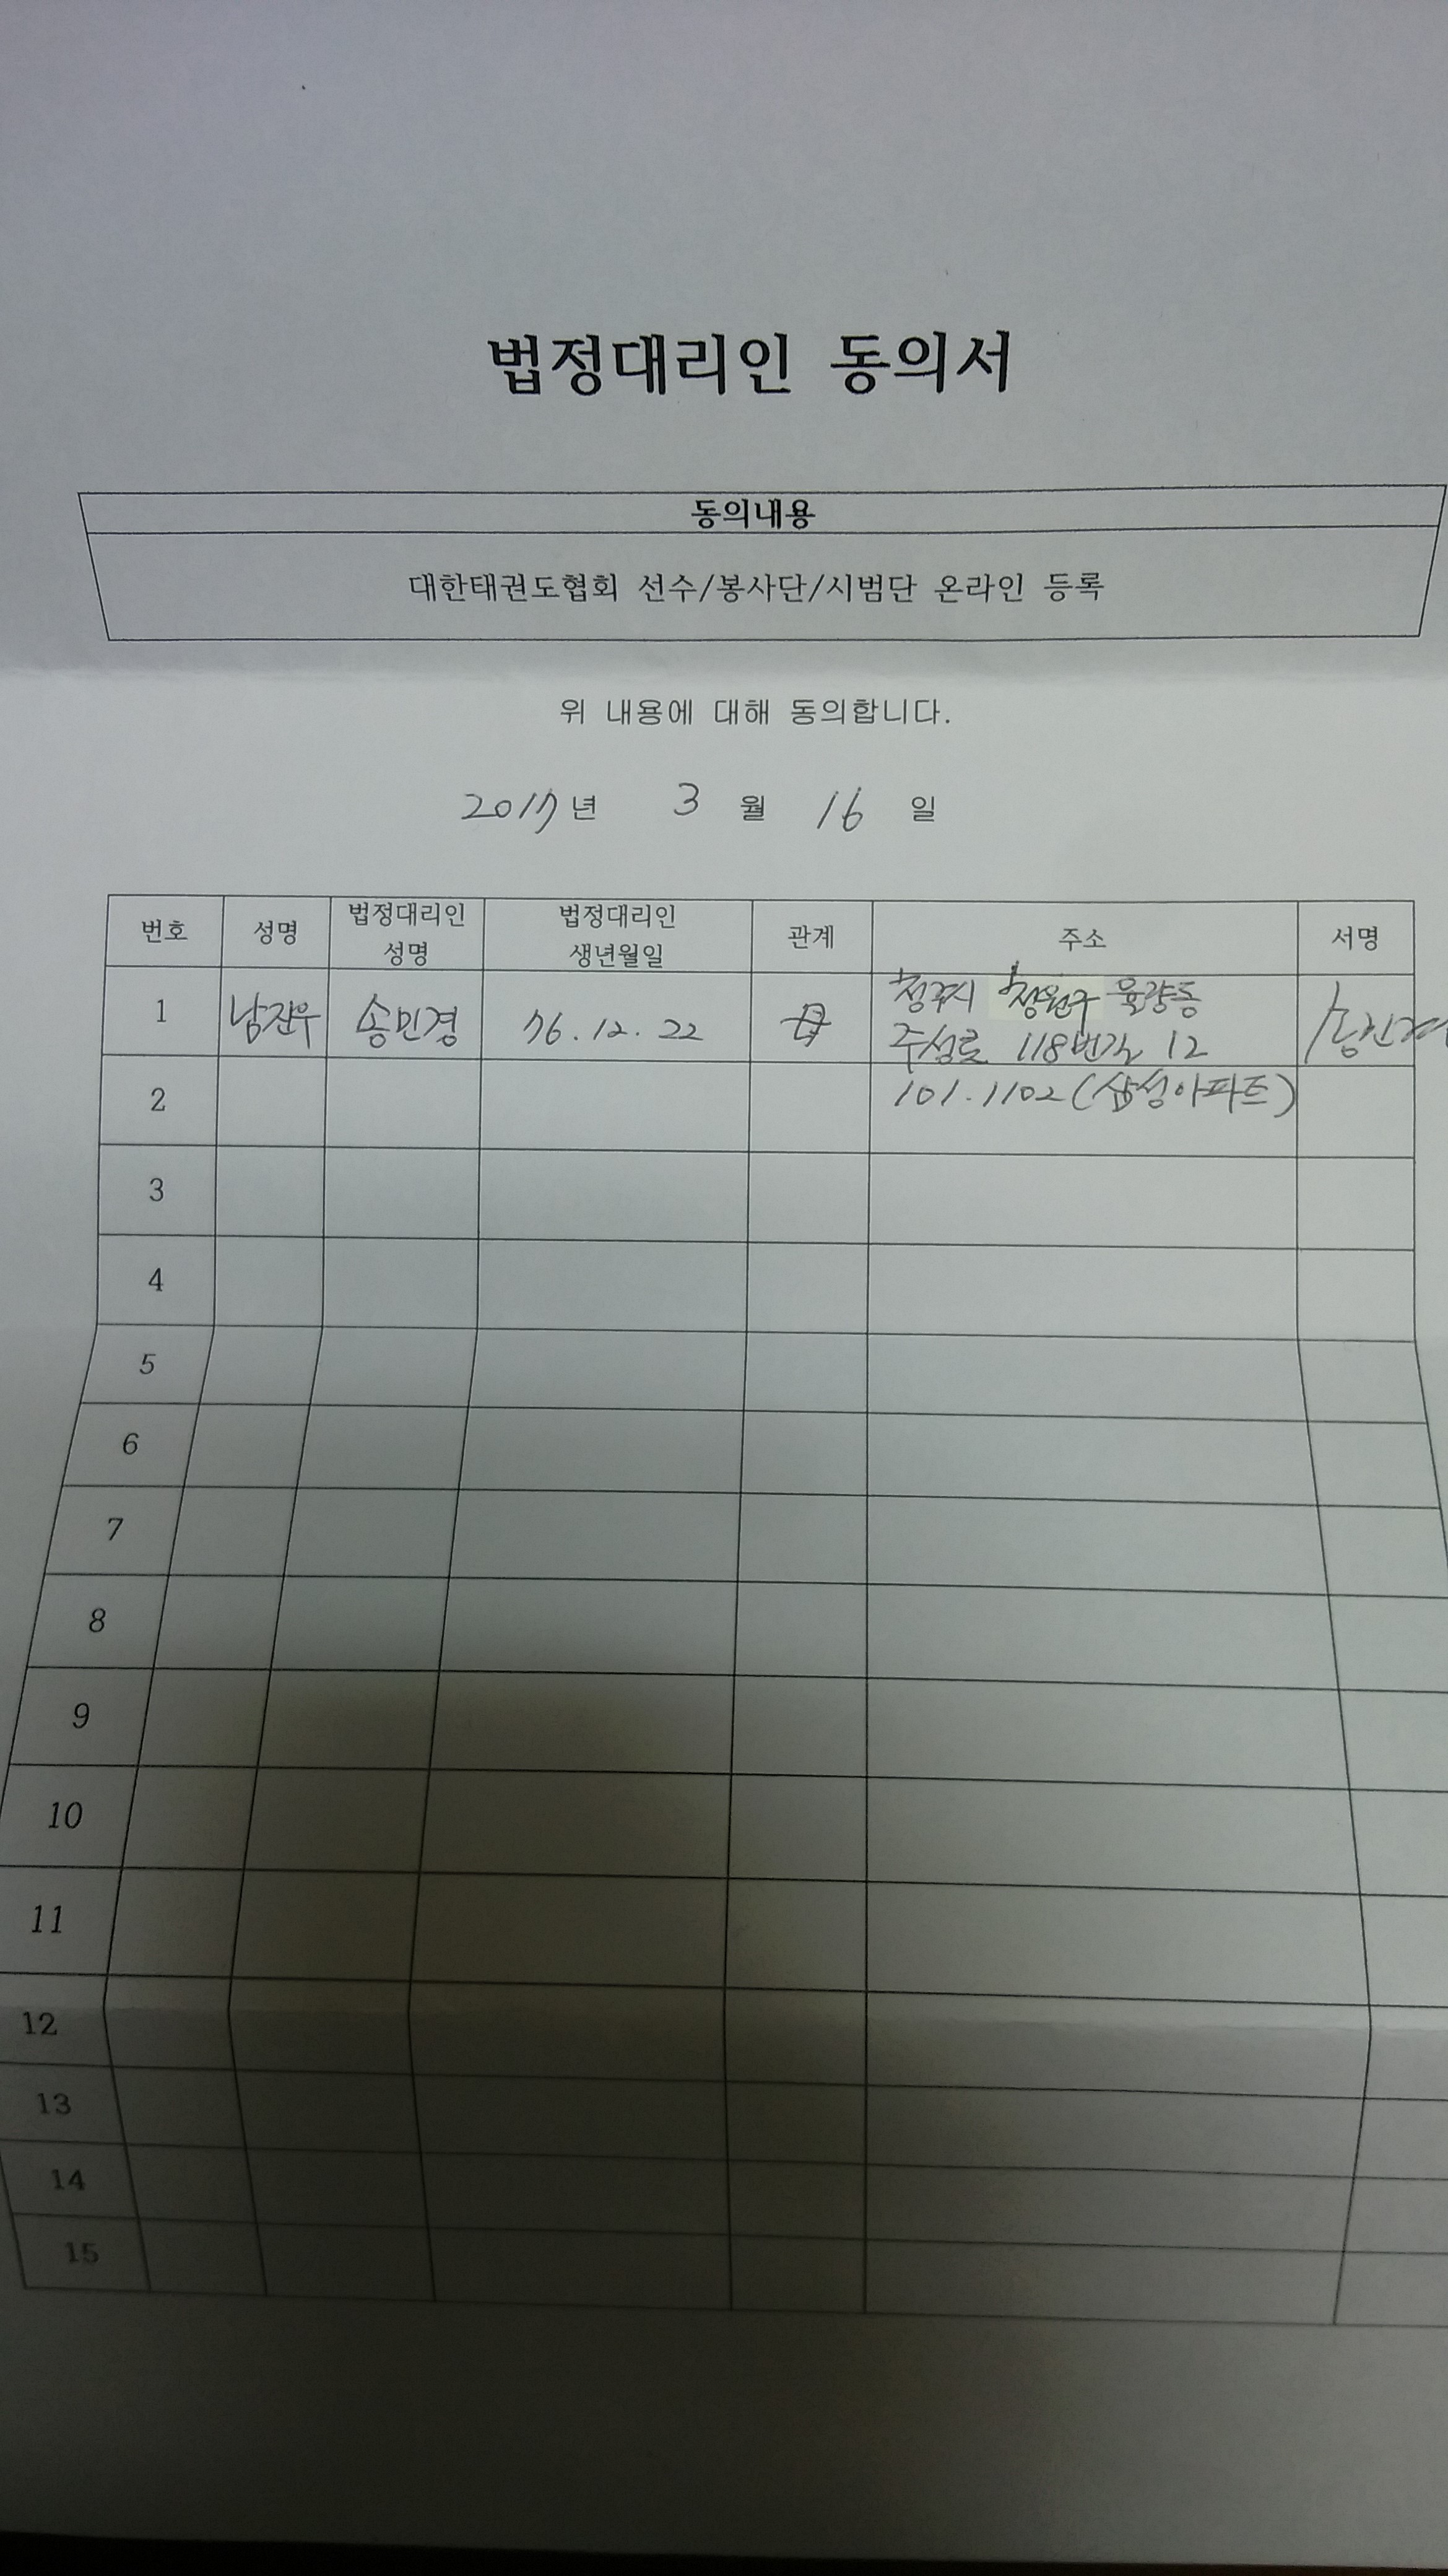 법정대리인 동의서
동의내용
대한태권도협회 선수/봉사단/시범단 온라인 등록
위 내용에 대해 동의합니다.
2017년 3 월 16 일
번호 성명 법정대리인 성명 법정대리인 생년월일 관계 주소 서명
1 남진우 송민경 76.12.22 母 청주시 청원구 율량동
주성로 118번길 12
2 101.1102(삼성아파트)
3
4
5
6
7
8
9
10
11
12
13
14
15